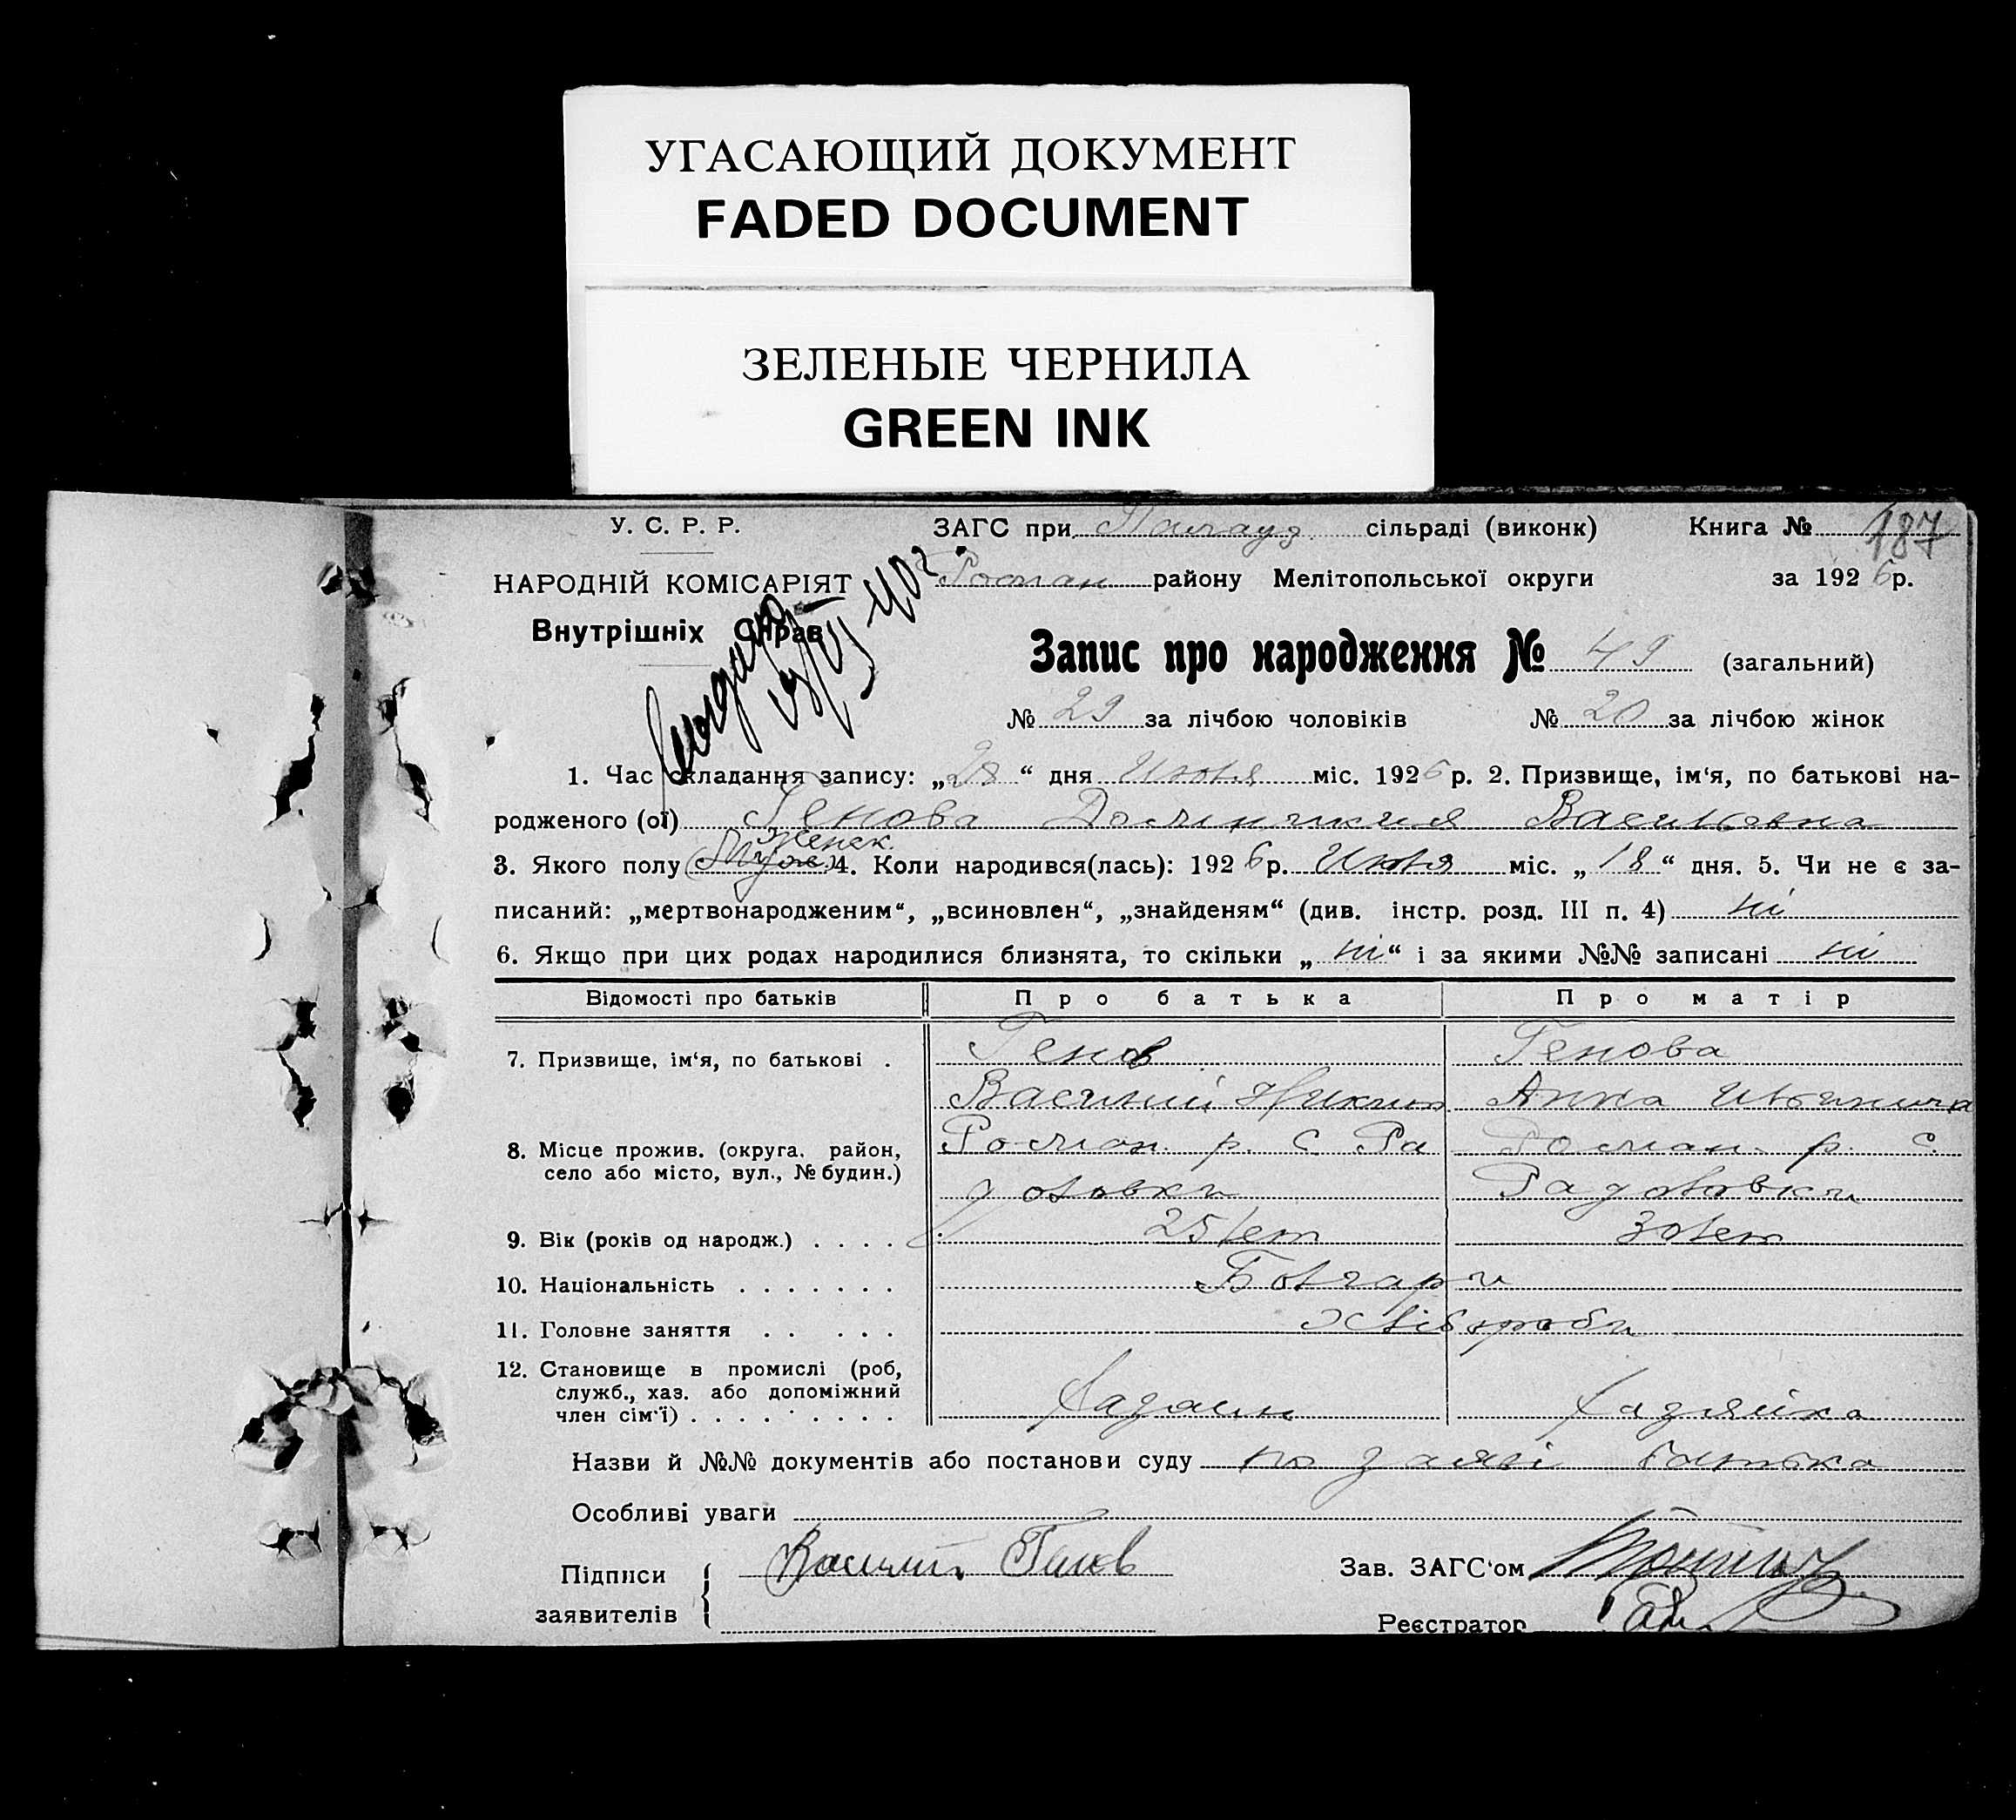 УГАСАЮЩИЙ ДОКУМЕНТ
FADED DOCUMENT
ЗЕЛЕНЫЕ ЧЕРНИЛА
GREEN INK
У. С. Р. Р.
ЗАГС при сільраді (виконк) Книга № 187
НАРОДНІЙ КОМІСАРІЯТ
Роман району Мелітопольської округи за 1926 р.
Внутрішніх Справ
Запис про народження № 49 (загальний)
№ 29 за лічбою чоловіків № 20 за лічбою жінок
1. Час складання запису: „28“ дня Июля міс. 1926 р. 2. Призвище, ім‘я, по батькові на-
родженого (ої) Генова Васильевна
Женск.
3. Якого полу (Муж.) 4. Коли народився(лась): 1926 р. Июля міс. „18“ дня. 5. Чи не є за-
писаний: „мертвонародженим“, „всиновлен“, „знайденям“ (див. інстр. розд. III п. 4) ні
6. Якщо при цих родах народилися близнята, то скільки „ні“ і за якими №№ записані ні
Відомості про батьків Про батька Про матір
7. Призвище, ім‘я, по батькові . Генов Генова
Василий Анна
8. Місце прожив. (округа, район, село або місто, вул., № будин.) Роман. р. С. Ра Роман. р. С.
доловки Радоловки
9. Вік (років од народж.) . . . . 25 лет 30 лет
10. Національність . . . . . . . Болгари
11. Головне заняття . . . . . Хлібороби
12. Становище в промислі (роб, служб., хаз. або допоміжний член сім‘ї) . . . . . . . . . Хазаин Хазяйка
Назви й №№ документів або постанови суду по заяві батька
Особливі уваги
Підписи заявителів { Василий Генов
Зав. ЗАГС‘ом
Реєстратор